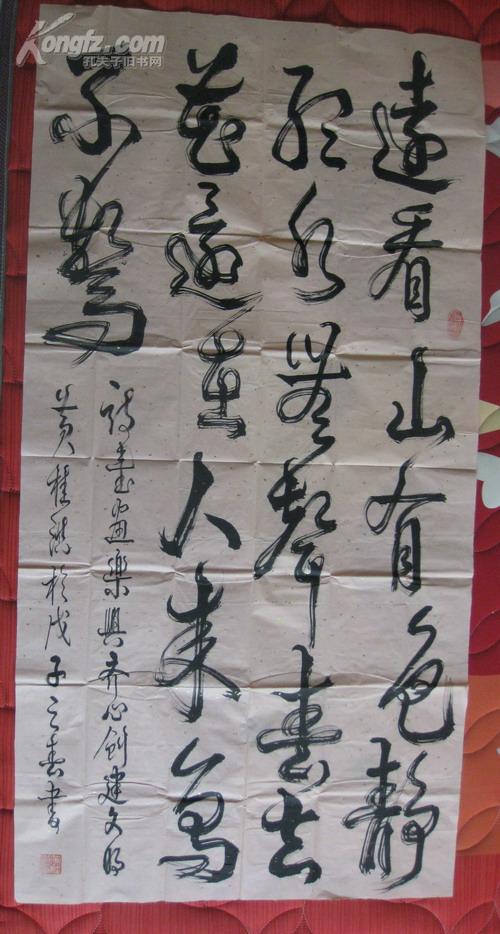 Kongfz.com
孔夫子旧书网
遠看山有色靜
聽水無聲春去
花還在人來鳥
不驚
詩書畫樂興齊心創建文明
黃桂於戊子之春書